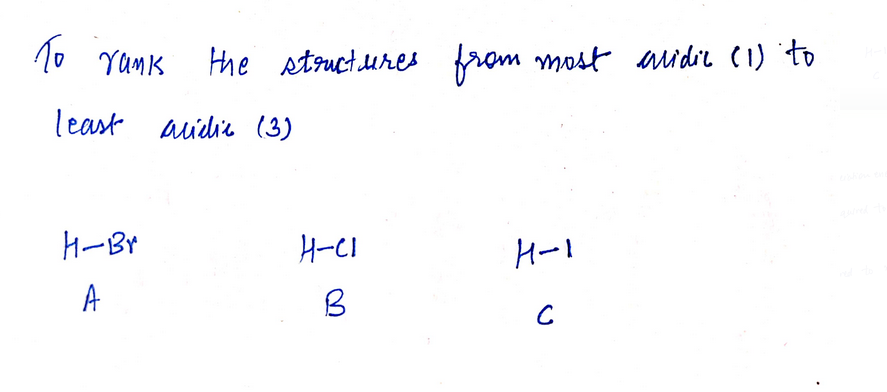 To rank the structures from most acidic (1) to
least acidic (3)
H-Br H-Cl H-I
A B C